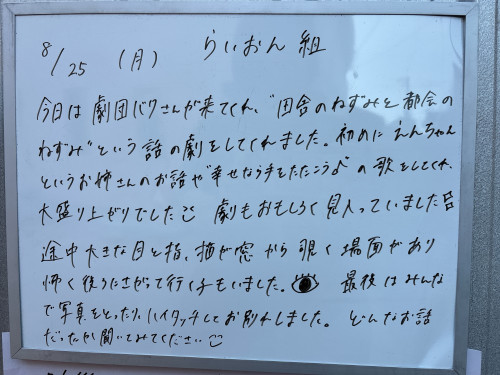 8/25 (月) らいおん組
今日は劇団バクさんが来てくれ、"田舎のねずみと都会の
ねずみ"という話の劇をしてくれました。初めにえんちゃん
というお姉さんのお話や"幸せなら手をたたこう♪"の歌をしてくれ、
大盛り上がりでした 劇もおもしろく見入っていました
途中大きな目と指、猫が窓から覗く場面があり
怖く後ろにさがって行く子もいました。 最後はみんな
で写真をとったり、ハイタッチしてお別れしました。どんなお話
だったか聞いてみてください